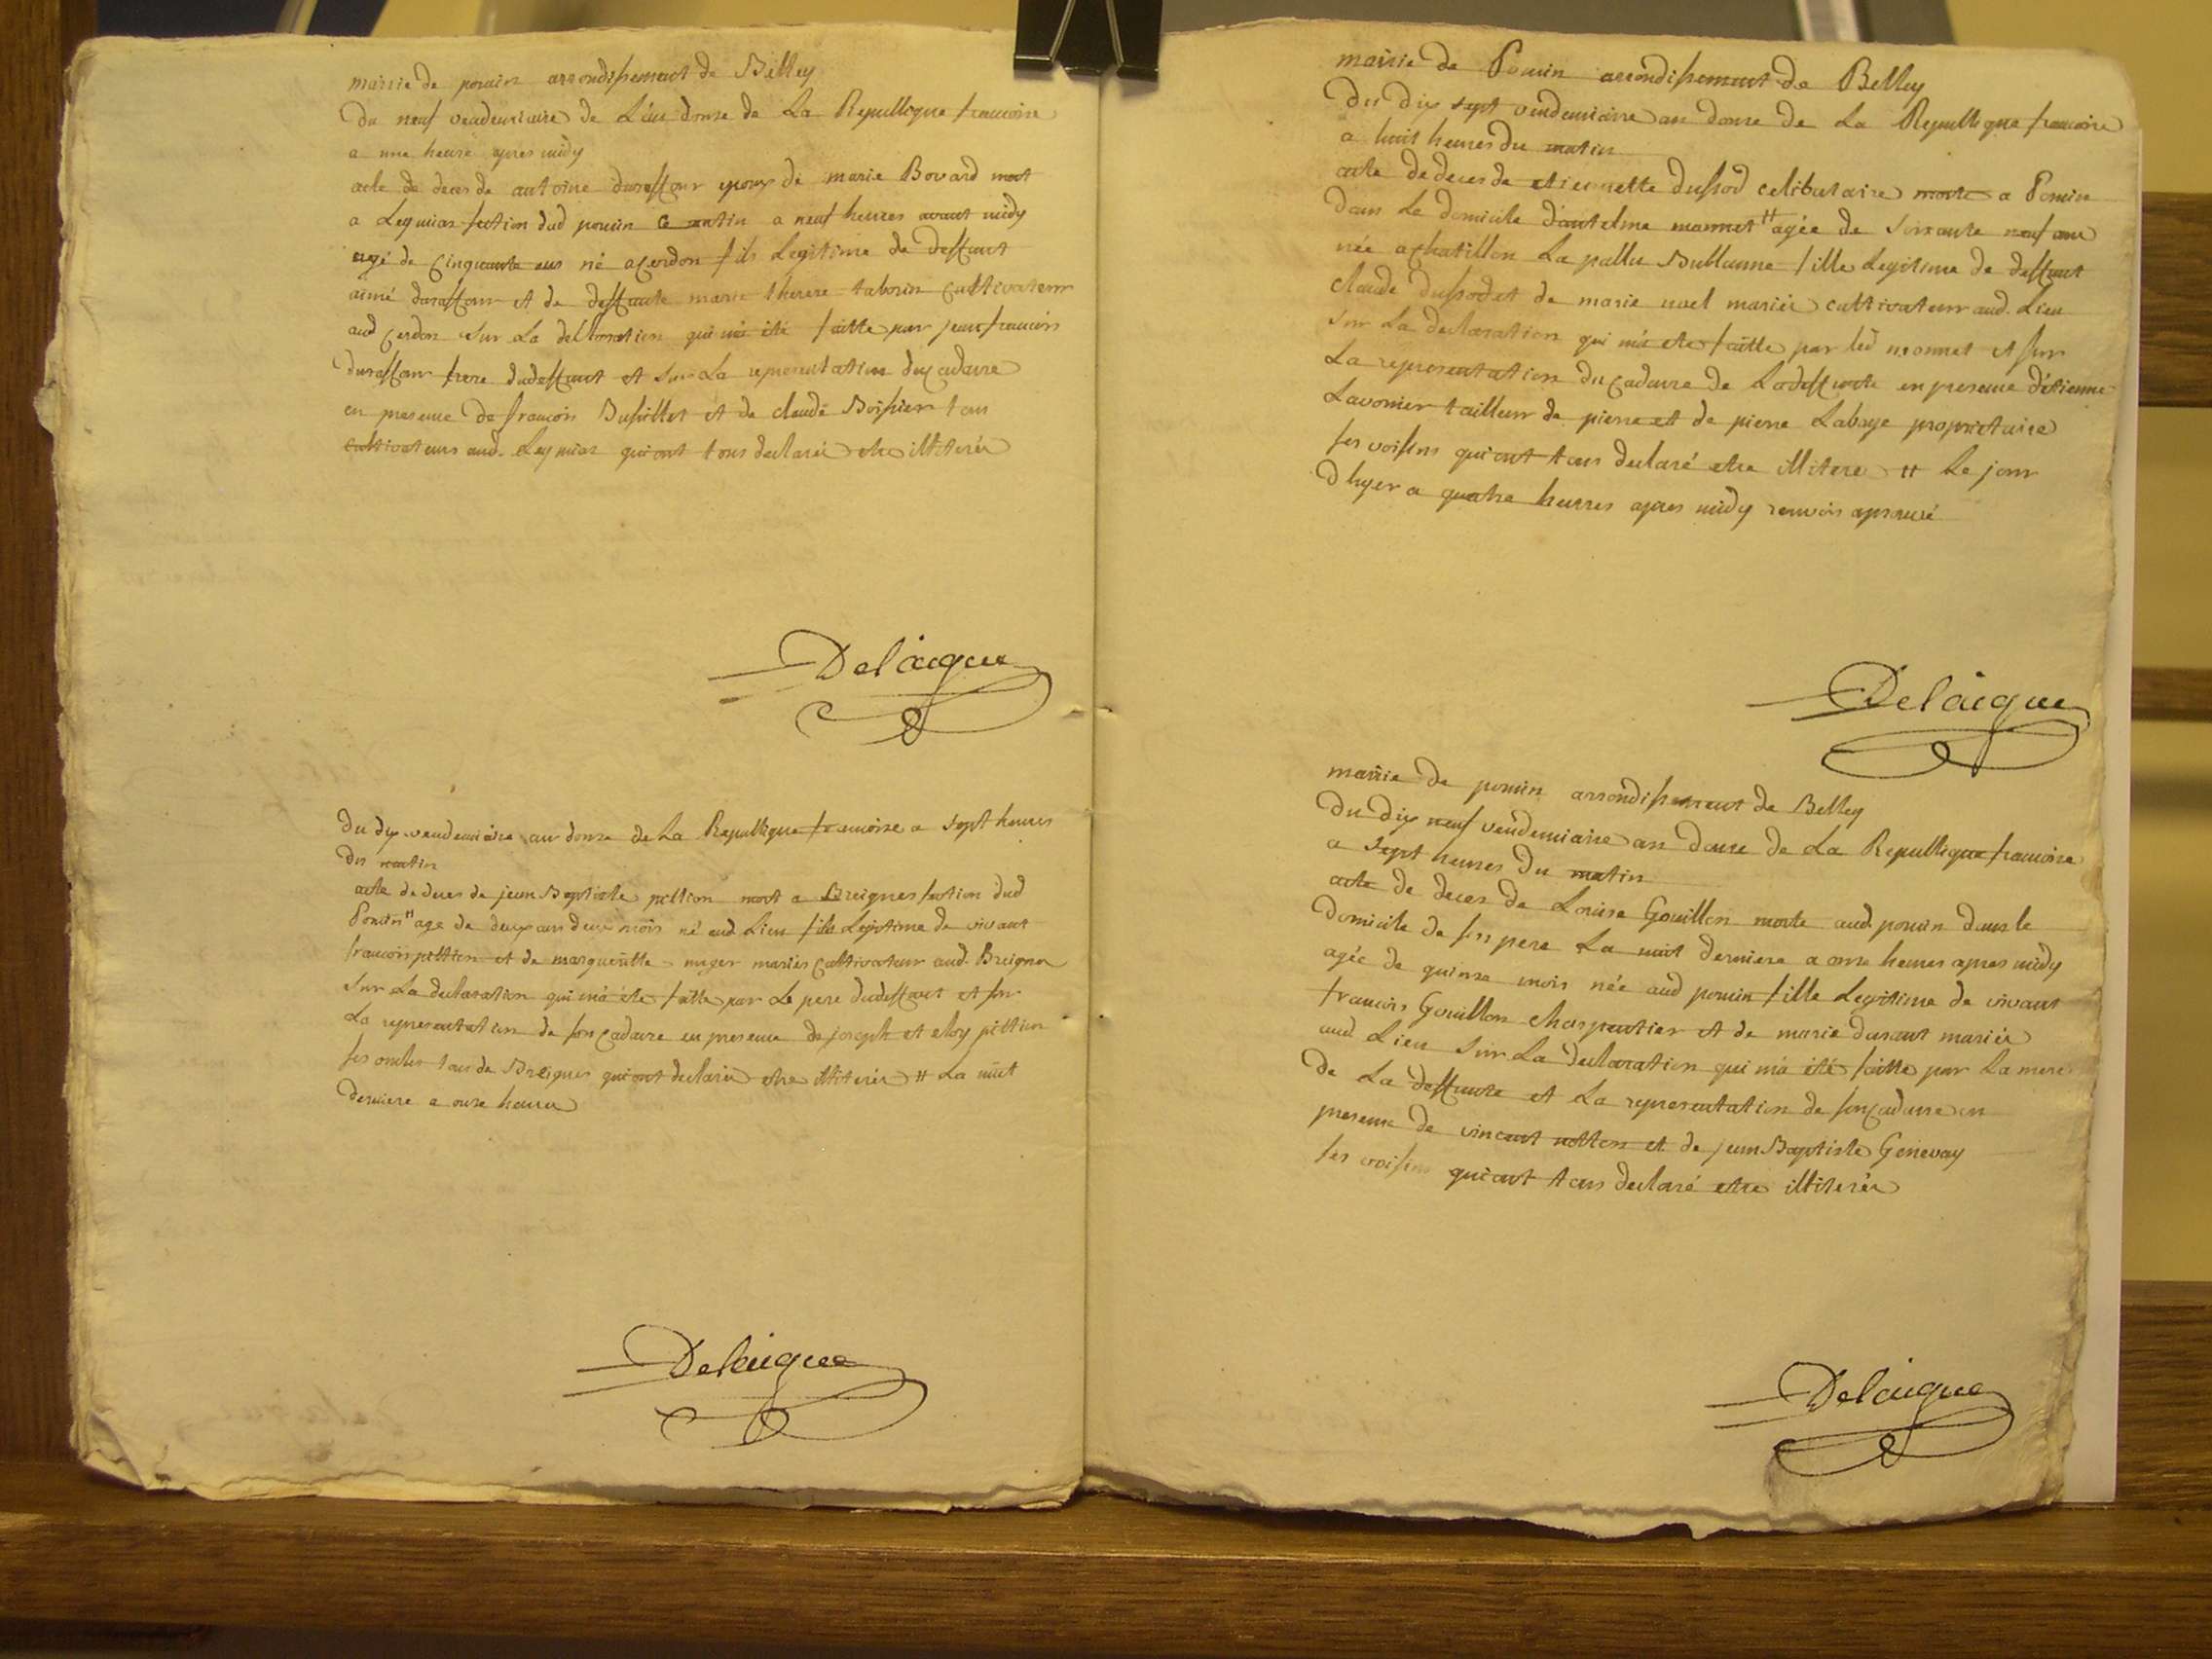 mairie de poncin arrondissement de Belley
Du neuf vendemiaire de L'an douse de La Republique francoise
a une heure apres midy
acte de deces de antoine duraffour epoux de marie Bovard mort
a Leymiar section dud poncin ce matin a neuf heures avant midy
agé de cinquante ans né a cerdon fils Legitime de deffunt
aimé duraffour et de deffunte marie therese taborin cultivateur
aud cerdon sur La declaration qui m'a été faitte par jean francois
duraffour frere dudeffunt et sur La representation du cadavre
en presence de francois Busillet et de claude Boissier tous
cultivateurs aud. Leymiar qui ont tous declarés etre illiterés
Delaigue
Du dix vendemiaire an douse de La Republique francoise a sept heures
du matin
acte de deces de jean Baptiste pittion mort a Breignes section dud
Poncin # age de deux ans deux mois né aud Lieu fils Legitime de vivant
francois pittion et de margueritte muger mariés cultivateur aud. Breignes
sur La declaration qui m'a ete faitte par Le pere dudeffunt et sur
La representation de son cadavre en presence de joseph et eloy pittion
ses oncles tous de Breignes qui ont declarés etre illiterés # La nuit
derniere a onze heures
Delaigue
mairie de Poncin arrondissement de Belley
Du dix sept vendemiaire an douse de La Republique francoise
a huit heures du matin
acte de deces de etiennette dussod celibataire morte a Poncin
dans Le domicile d'antelme monnet # agée de soixante neuf ans
née a chatillon La pallu Bublanne fille Legitime de deffunt
claude dussod et de marie nael mariés cultivateur aud. Lieu
sur La declaration qui m'a ete faitte par led monnet et sur
La representation du cadavre de Ladeffunte en presence d'etienne
Lavonier tailleur de pierre et de pierre Labaye proprietaire
ses voisins qui ont tous declaré etre illitere # Le jour
d'hyer a quatre heures apres midy renvois aprouvé
Delaigue
mairie de poncin arrondissement de Belley
Du dix neuf vendemiaire an douse de La Republique francoise
a sept heures du matin
acte de deces de Louise Gouillon morte aud. poncin dans le
domicile de son pere La nuit derniere a onse heures apres midy
agée de quinse mois née aud poncin fille Legitime de vivant
francois Gouillon charpentier et de marie durant mariés
aud Lieu sur La declaration qui m'a été faitte par La mere
de La deffunte et La representation de son cadavre en
presence de vincent notton et de jean Baptiste Genevay
ses voisins qui ont tous declaré etre illiterés
Delaigue